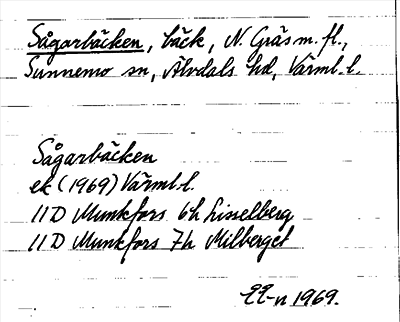 Sågarbäcken, bäck, N. Gräsm. fl.,
Sunnemo sn, Älvdals hd, Värml. l.
Sågarbäcken
ek (1969) Värml. l.
11D Munkfors 6h Lisselberg
11D Munkfors 7h Milberget
1969.